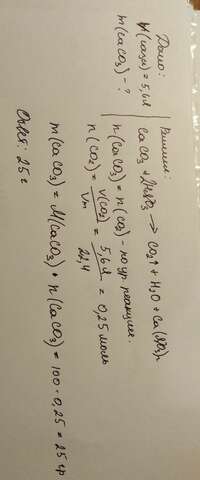 Дано:
V(газа) = 5,6 л
m(CaCO3) - ?
Решение:
CaCO3 + HNO3 → CO2↑ + H2O + Ca(NO3)2
n(CaCO3) = n(CO2) - по ур. реакции.
n(CO2) = V(CO2) / Vm = 5,6 л / 22,4 = 0,25 моль
m(CaCO3) = M(CaCO3) · n(CaCO3) = 100 · 0,25 = 25 гр
Ответ: 25 г